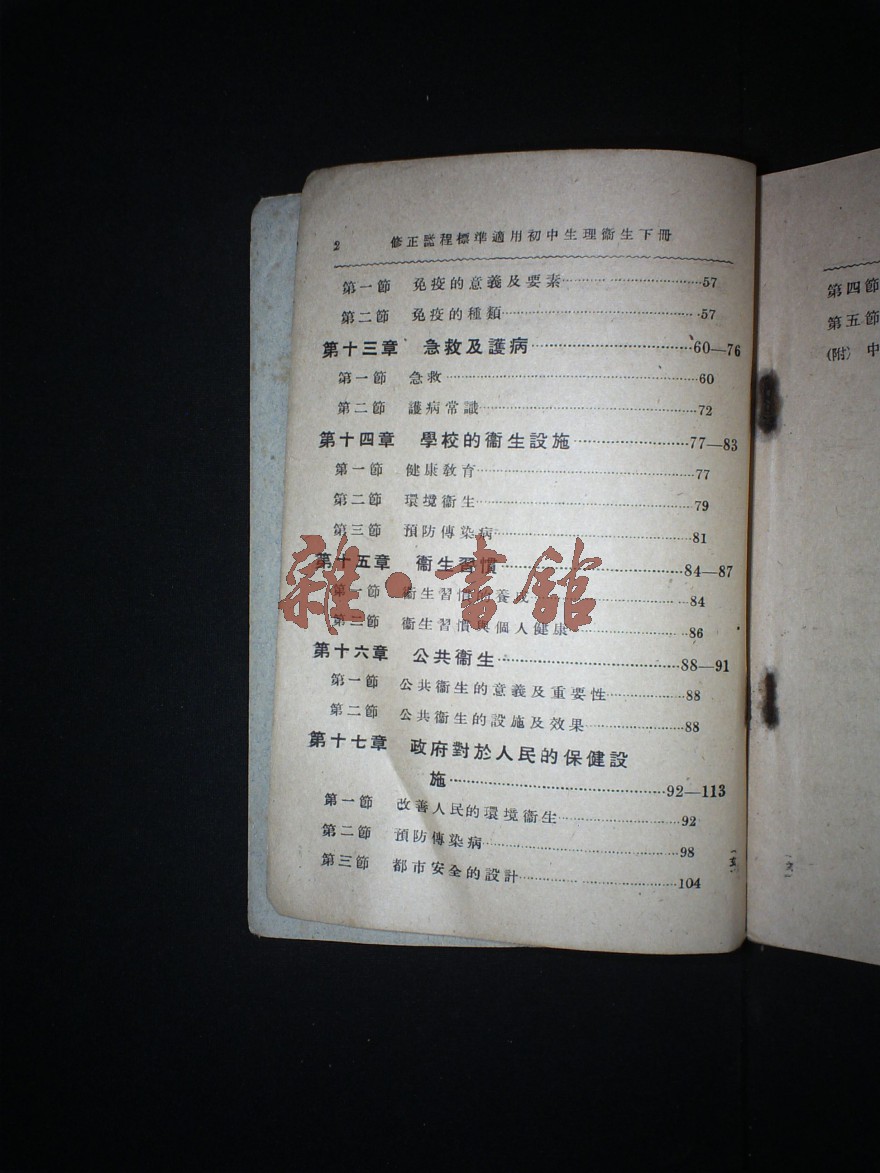 2 修正課程標準適用初中生理衞生下冊
第一節 免疫的意義及要素……57
第二節 免疫的種類……57
第十三章 急救及護病……60—76
第一節 急救……60
第二節 護病常識……72
第十四章 學校的衞生設施……77—83
第一節 健康敎育……77
第二節 環境衞生……79
第三節 預防傳染病……81
第十五章 衞生習慣……84—87
第一節 衞生習慣的養成……84
第二節 衞生習慣與個人健康……86
第十六章 公共衞生……88—91
第一節 公共衞生的意義及重要性……88
第二節 公共衞生的設施及效果……88
第十七章 政府對於人民的保健設
施……92—113
第一節 改善人民的環境衞生……92
第二節 預防傳染病……98
第三節 都市安全的設計……104
第四節
第五節
(附) 中
雜·書館